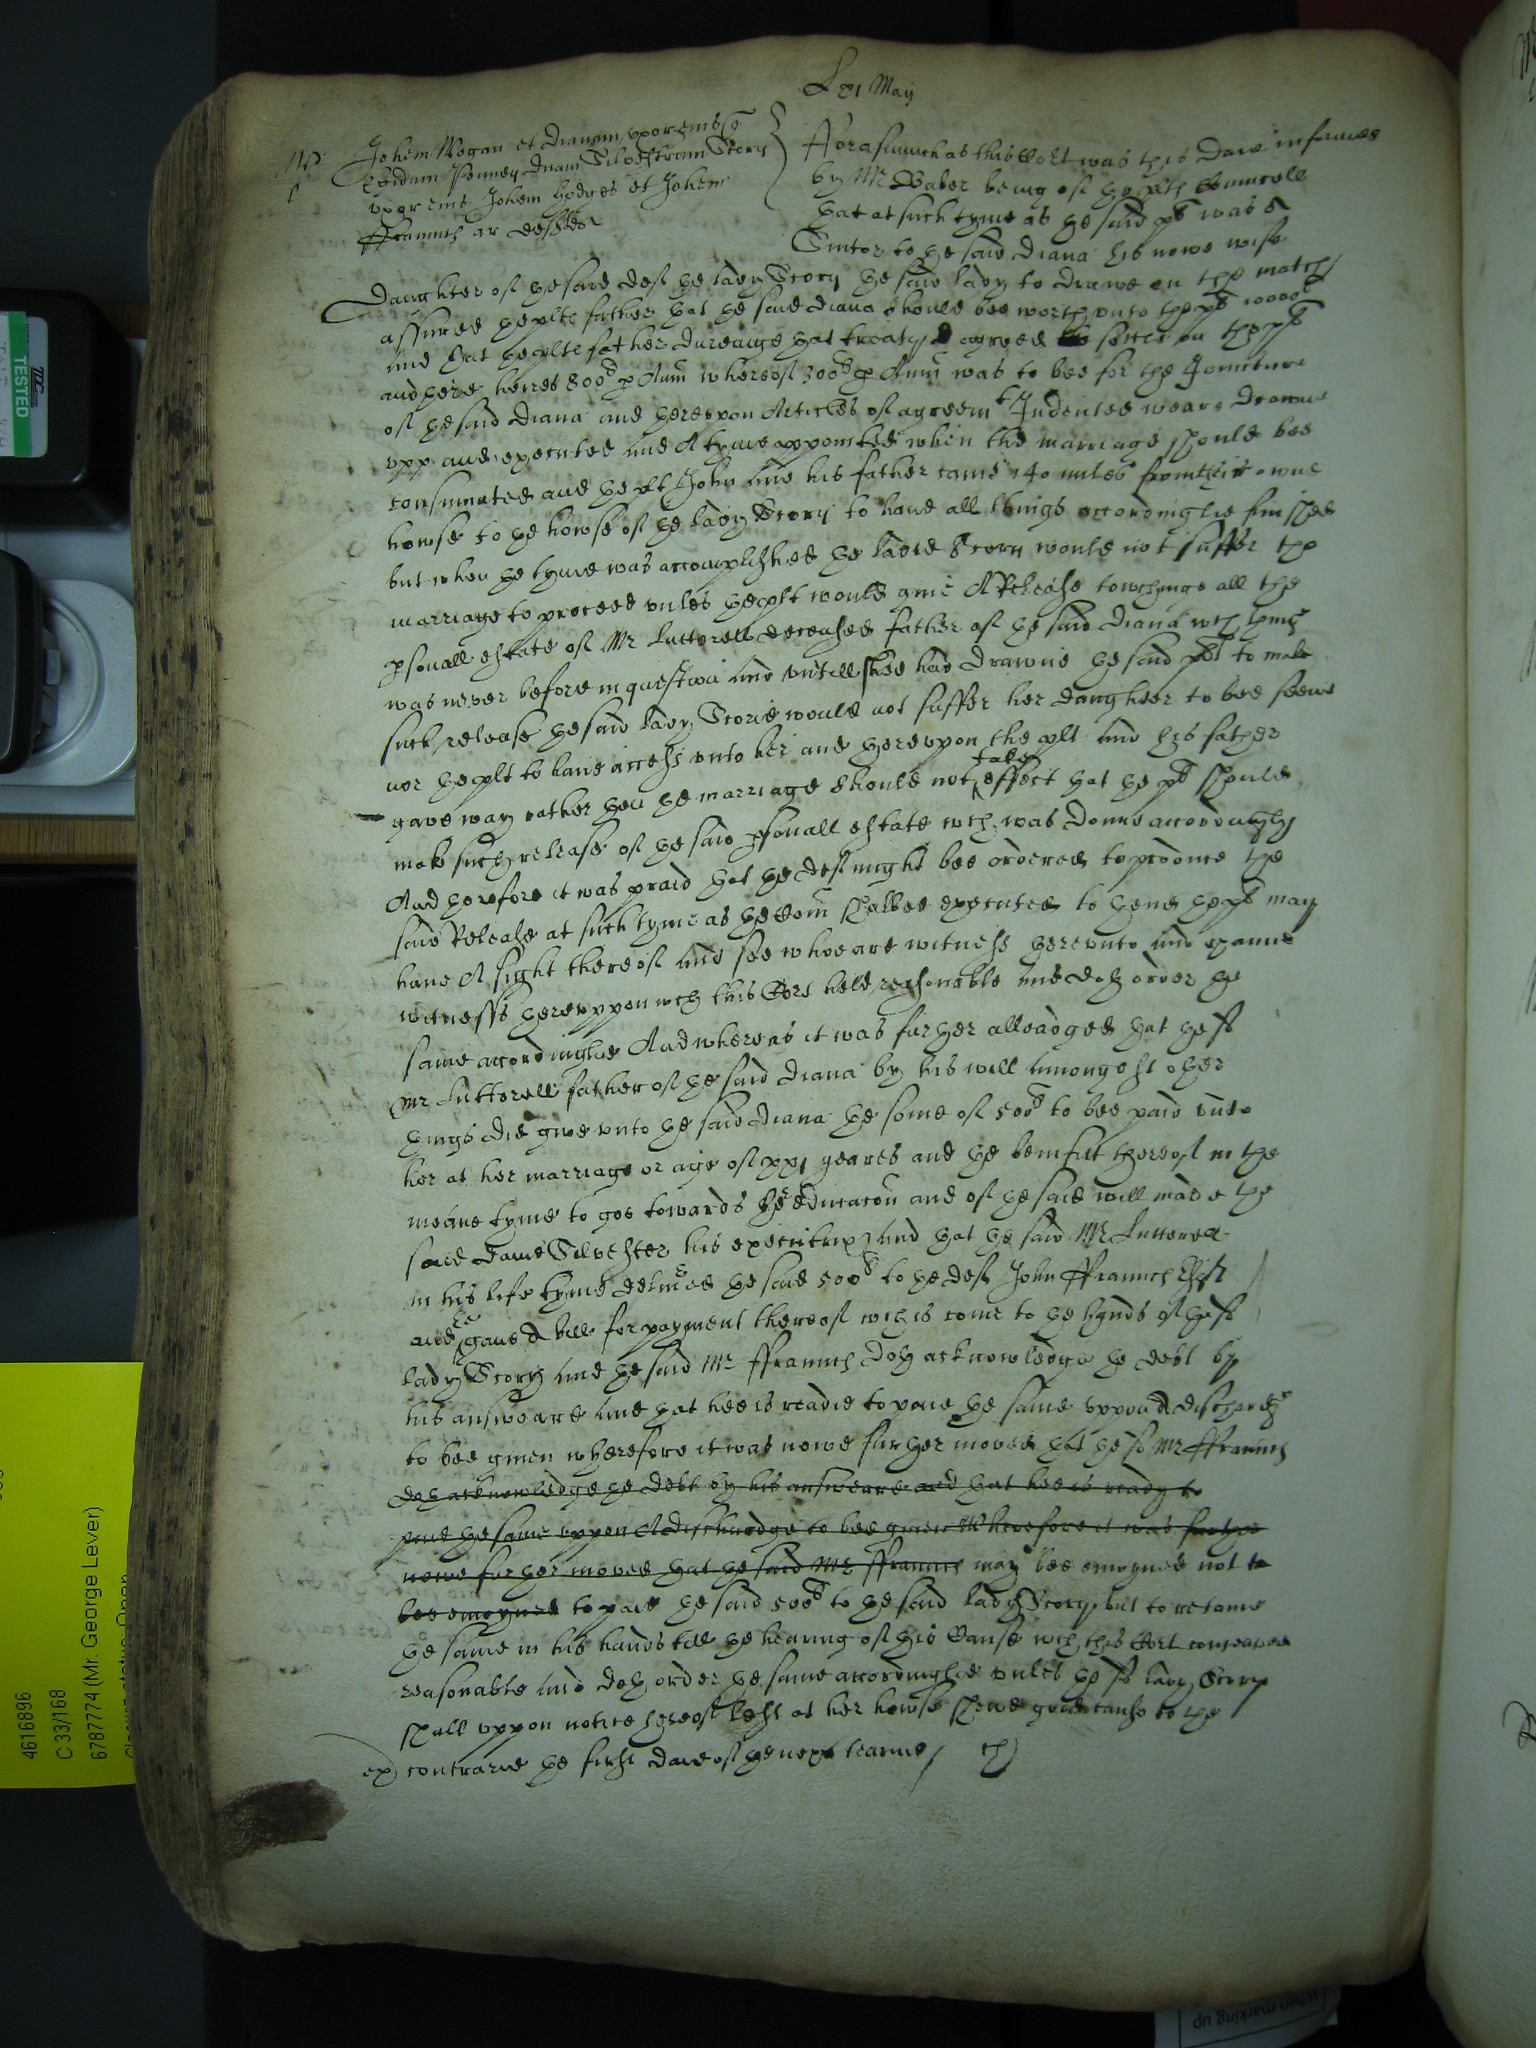 xxi May
Johem Wogan et Dianam uxorem eius q
Johem Hodges et Johem
Ffraunces ar defend
Forasmuch as this Cort was this daie informed
by Mr Baber being of the plts Councell
that at such tyme as the said plt was a
Sutor to the said Diana his nowe wife
Daughter of the said deft the lady Story the said lady to drawe on the match
assured the plts father that the said Diana should bee worth unto the plt 1000l
and that the plts father dureinge that treaty agreed to settle on the plt
and there heires 800l p Anm whereof 300l p Anm was to bee for the Joincture
of the said Diana and thereupon Articles of agreemt Indented weare drawne
upp and executed and A tyme appointed when the marriage should bee
consumated and the plt John and his father came 140 miles from their owne
howse to the howse of the lady Story to have all things accordinglie finished
but when the tyme was accomplished the ladie Story would not suffer the
marriage to proceed unles the plt would give A Release towchinge all the
psonall estate of Mr Lutterell deceased father of the said Diana wch thing
was never before in question and untill shee had drawne the said plt to make
such release the said lady Storie would not suffer her daughter to bee seene
nor the plt to have accesse unto her and thereupon the plt and his father
gave way rather then the marriage should not take effect that the plt should
make such release of the said psonall estate wch was donne accordingly
And therefore it was praid that the deft might bee ordered to produce the
said Release at such tyme as the Comn shalbee executed to thend the plt may
have A sight thereof and see whoe are witness thereunto and examine
witnesses thereuppon wch this Cort held reasonable and doth order the
same accordinglie And whereas it was further alleadged that the sd
Mr Lutterell father of the said Diana by his will amongest other
things did give unto the said Diana the some of 500l to bee paid unto
her at her marriage or age of xxi yeares and the benifitt thereof in the
meane tyme to goe towards her educacon and of the said will made the
said Dame Silvester his executrix and that the said Mr Lutterell
in his life tyme delived the said 500l to the deft John Ffraunces
and gave A bill for payment thereof wch is come to the hands of the sd
lady Story and the said Mr Ffraunces doth acknowledge the debt by
his answeare and that hee is readie to paie the same uppon A discharge
to bee given wherefore it was nowe further moved that the sd Mr Ffraunces
doth acknowledge the debt by his answerre and that hee is ready to
paie the same uppon A discharge to bee given Wherefore it was further
nowe further moved that the said Mr Ffraunces may bee enjoyned not to
bee enjoyned to paie the said 500l to the said lady Story but to retaine
the same in his hands till the hearing of this Cause wch this Cort conceaved
reasonable and doth order the same accordinglie unles the sd lady Story
shall uppon notice hereof left at her howse shewe good cause to the
contrarie the first daie of the next tearme
TESTED
4616896
C 33/168
6787774 (Mr. George Lever)
Closure status: Open
When marking up